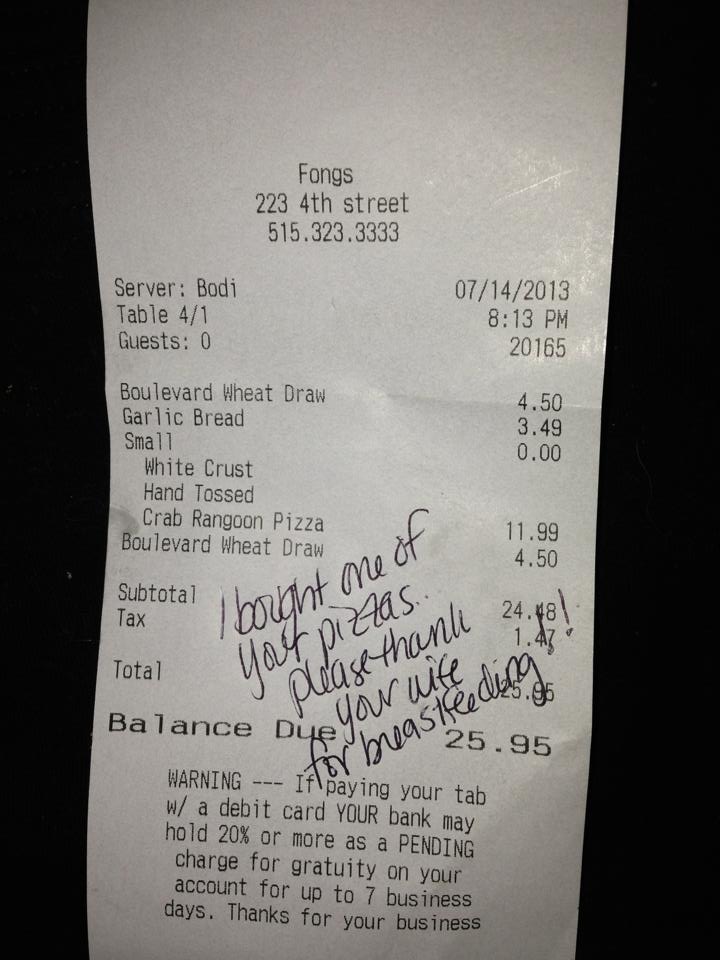 Fongs
223 4th street
515.323.3333
Server: Bodi 07/14/2013
Table 4/1 8:13 PM
Guests: 0 20165
Boulevard Wheat Draw 4.50
Garlic Bread 3.49
Small 0.00
White Crust
Hand Tossed
Crab Rangoon Pizza 11.99
Boulevard Wheat Draw 4.50
Subtotal 24.48
Tax 1.47
Total 25.95
I bought one of
your pizzas..
please thank
your wife
for breastfeeding!!
Balance Due 25.95
WARNING --- If paying your tab
w/ a debit card YOUR bank may
hold 20% or more as a PENDING
charge for gratuity on your
account for up to 7 business
days. Thanks for your business